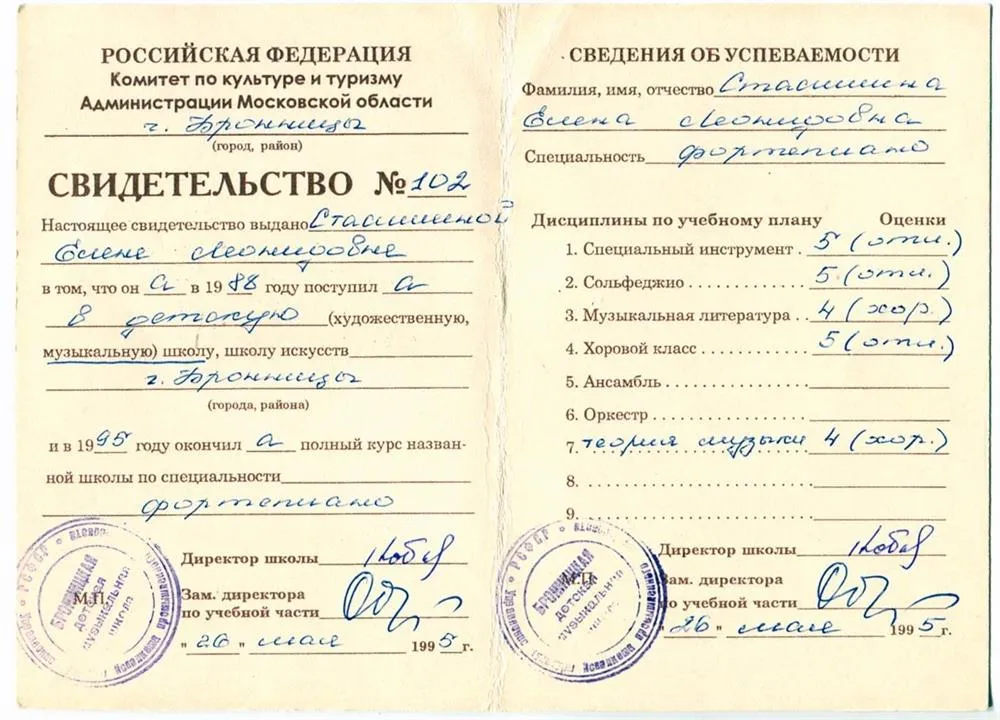 РОССИЙСКАЯ ФЕДЕРАЦИЯ
Комитет по культуре и туризму
Администрации Московской области
г. Бронницы
(город, район)
СВИДЕТЕЛЬСТВО №102
Настоящее свидетельство выдано Сташиной
Елене Леонидовне
в том, что он а в 1988 году поступил а
в детскую (художественную,
музыкальную) школу, школу искусств
г. Бронницы
(города, района)
и в 1995 году окончил а полный курс назван-
ной школы по специальности
фортепиано
Директор школы
М.П.
Зам. директора
по учебной части
"26" мая 1995 г.
БРОННИЦКАЯ
ДЕТСКАЯ
МУЗЫКАЛЬНАЯ
ШКОЛА
РСФСР
СВЕДЕНИЯ ОБ УСПЕВАЕМОСТИ
Фамилия, имя, отчество
Елена Леонидовна
Специальность фортепиано
Дисциплины по учебному плану Оценки
1. Специальный инструмент . 5 (отл.)
2. Сольфеджио . . . . . . . . . . . 5 (отл.)
3. Музыкальная литература . . 4 (хор.)
4. Хоровой класс . . . . . . . . . . 5 (отл.)
5. Ансамбль . . . . . . . . . . . . . .
6. Оркестр . . . . . . . . . . . . . . .
7. теория музыки 4 (хор.)
8. . . . . . . . . . . . . . . . . . . . . . .
9. . . . . . . . . . . . . . . . . . . . . . .
Директор школы
М.П.
Зам. директора
по учебной части
"26" мая 1995 г.
БРОННИЦКАЯ
ДЕТСКАЯ
МУЗЫКАЛЬНАЯ
РСФСР